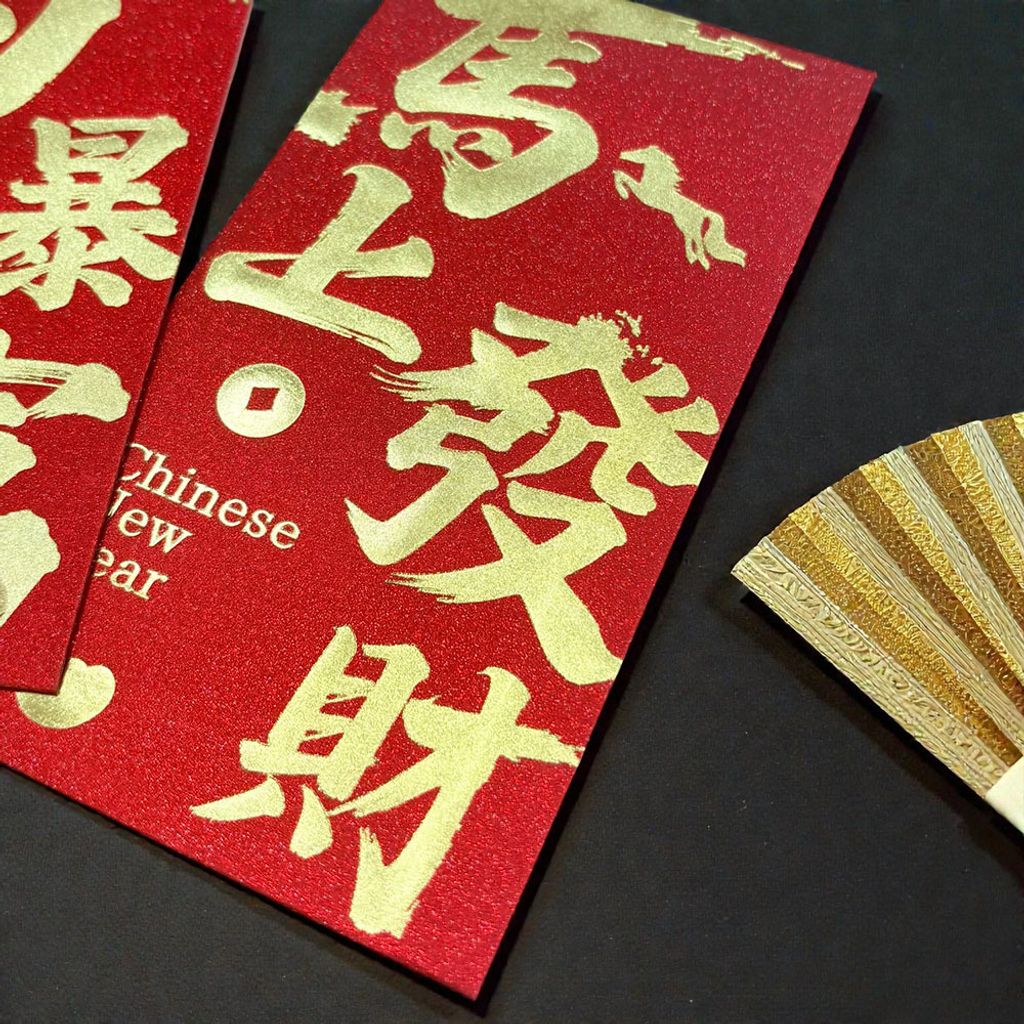 暴
馬
上
發
財
Chinese
New
Year